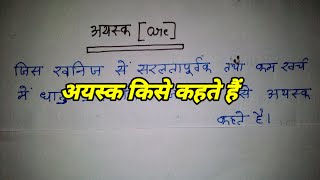 अयस्क [Ore]
जिस खनिज से सरलतापूर्वक तथा कम खर्च
में धातु से अयस्क
अयस्क किसे कहते हैं
कहते है।